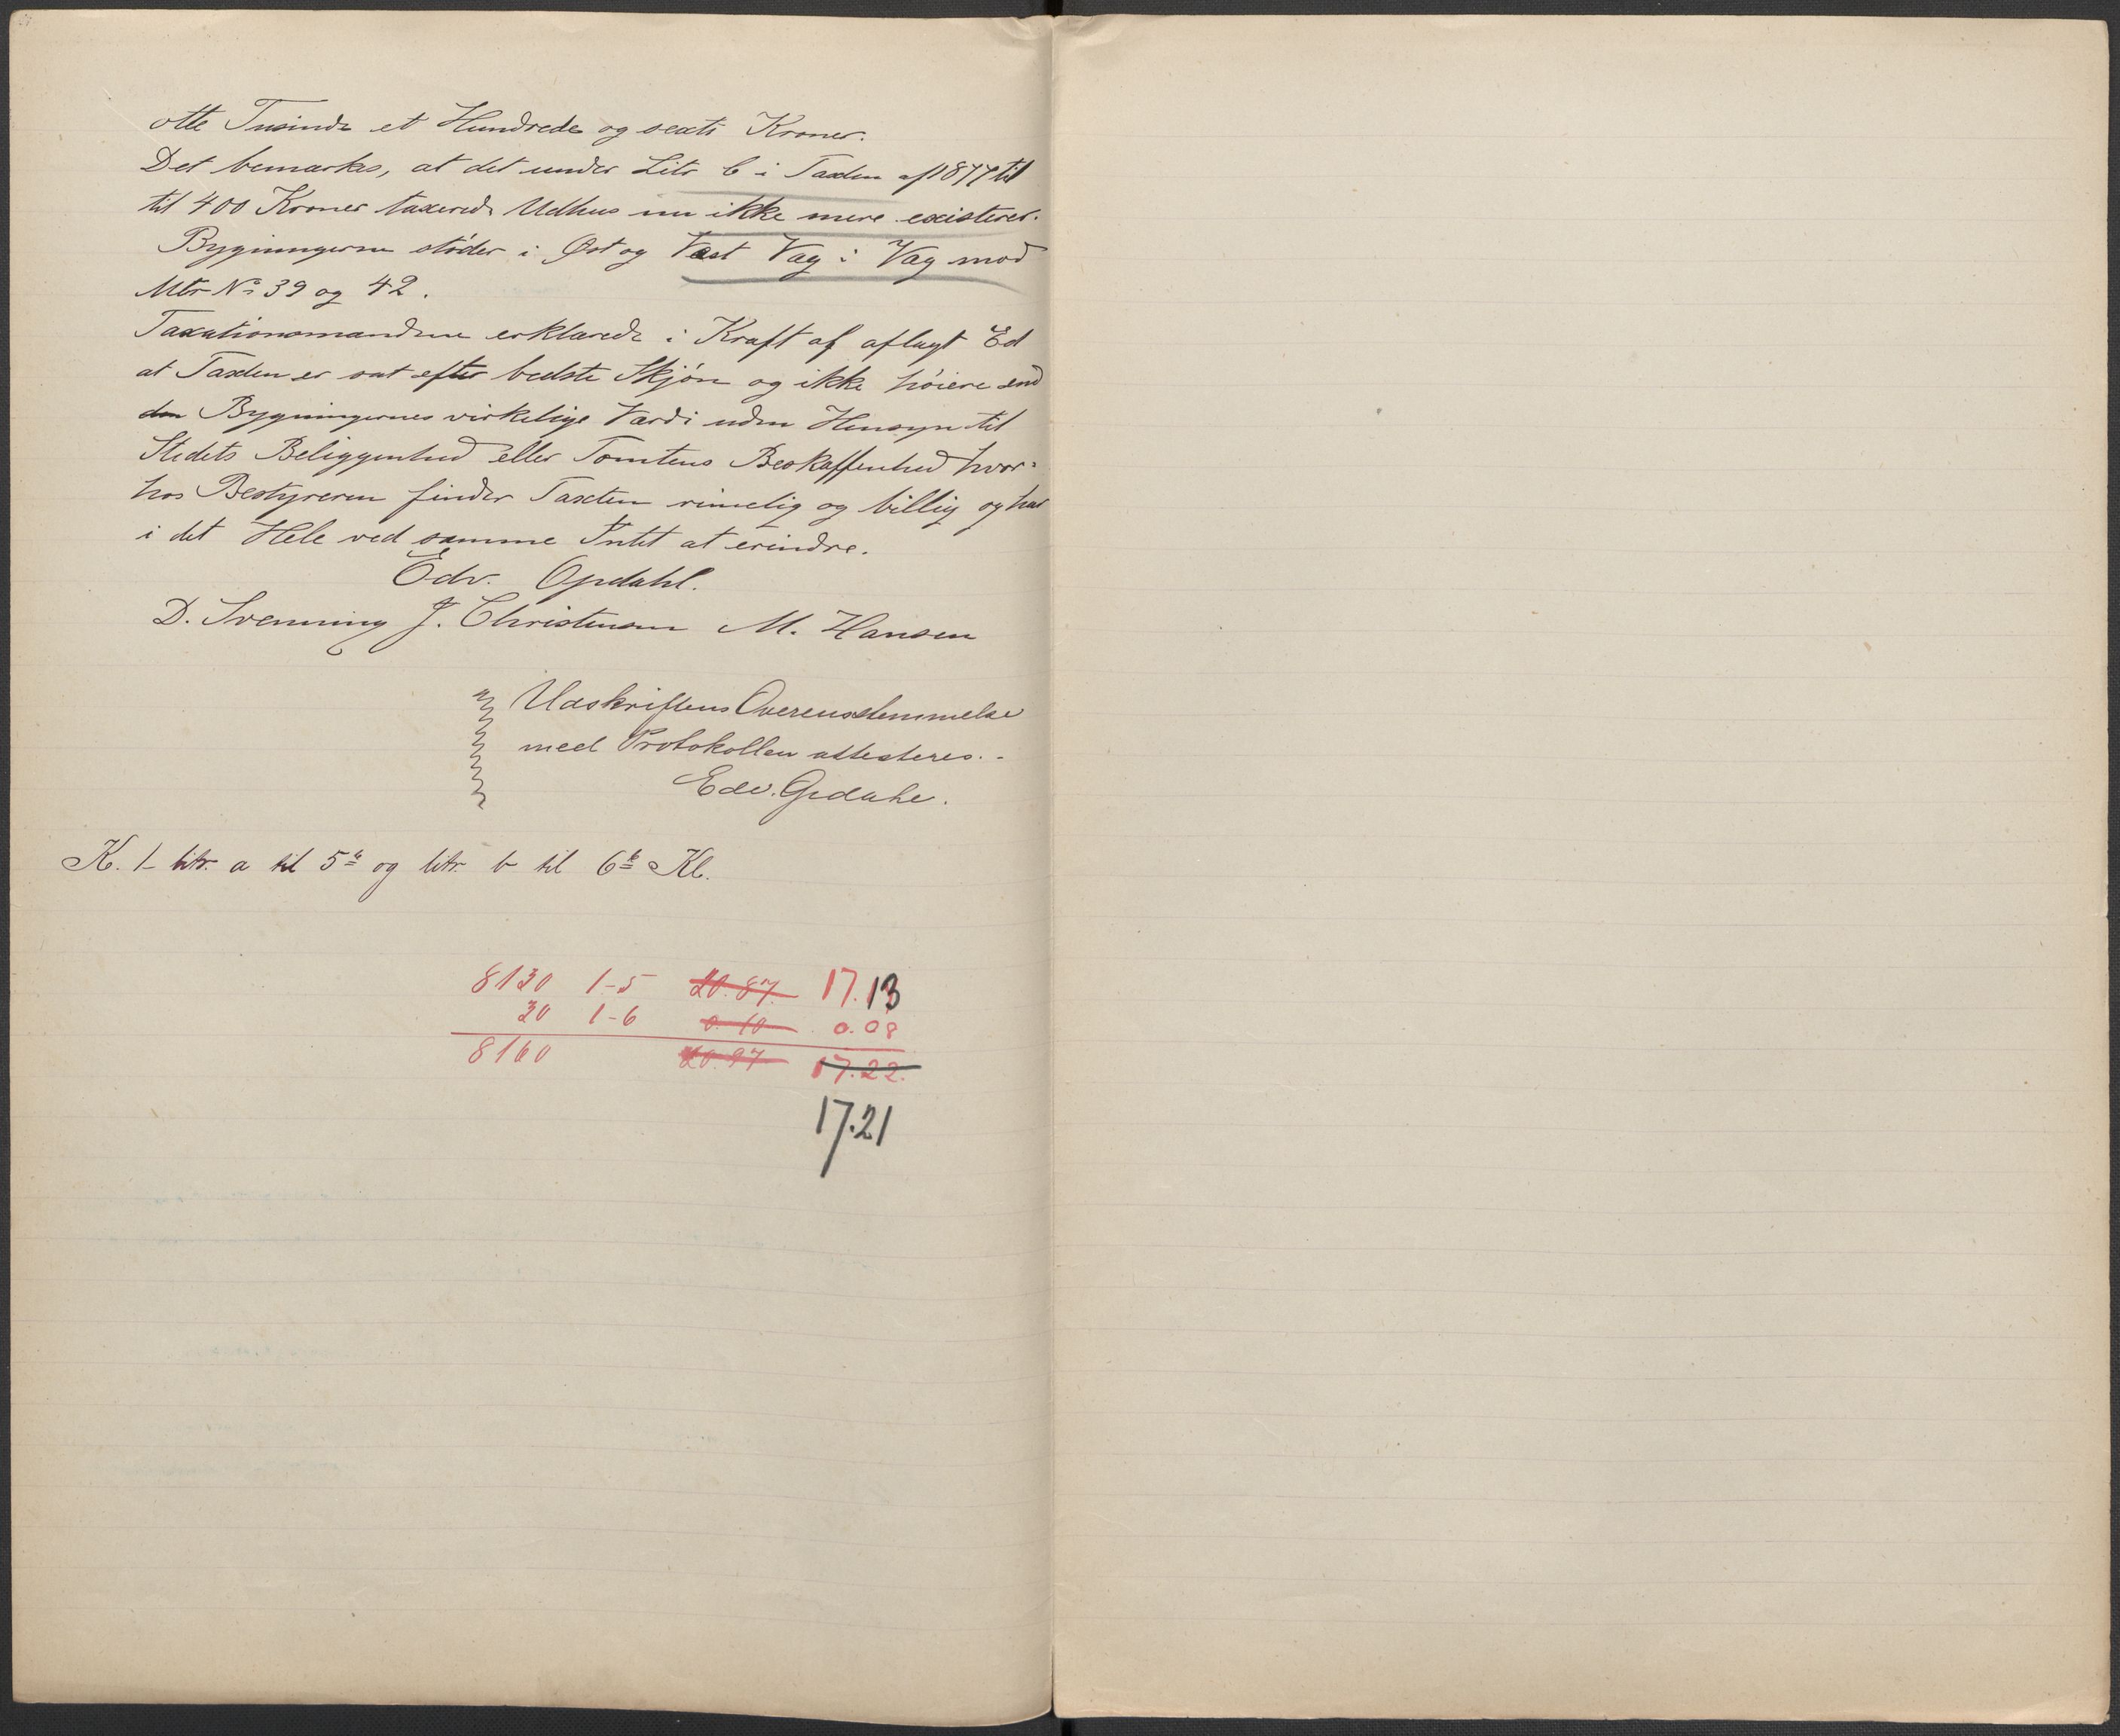 otte Tusinde et Hundrede og sexti Kroner.
Det bemærkes, at det under Litr b i Taxten af 1877 til
til 400 Kroner taxerede Udhus nu ikke mere existerer.
Bygningerne støder i Øst og Vest Væg i Væg mod
Mtr No 39 og 42.
Taxationsmændene erklærede i Kraft af aflagt Ed
at Taxten er sat efter bedste Skjøn og ikke høiere end
den Bygningernes virkelige Værdi uden Hensyn til
Stedets Beliggenhed eller Tomtens Beskaffenhed hvor-
hos Bestyreren finder Taxten rimelig og billig og har
i det Hele ved samme Intet at erindre.
Edv. Opdahl.
D. Svenning J. Christensen M. Hansen
Udskriftens Overensstemmelse
med Protokollen attesteres.-
Edv. Opdahl.
K. 1- litr. a til 5te og litr. b til 6te Kl.
8130 1-5 20.87 17.13
30 1-6 0.10 0.08
8160 20.97 17.22.
17.21